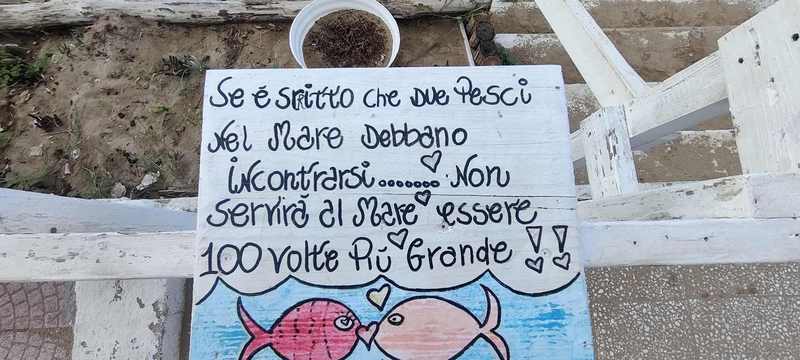 Se é scritto che due Pesci
nel mare debbano
incontrarsi........ Non
servirà al mare essere
100 volte più grande !!